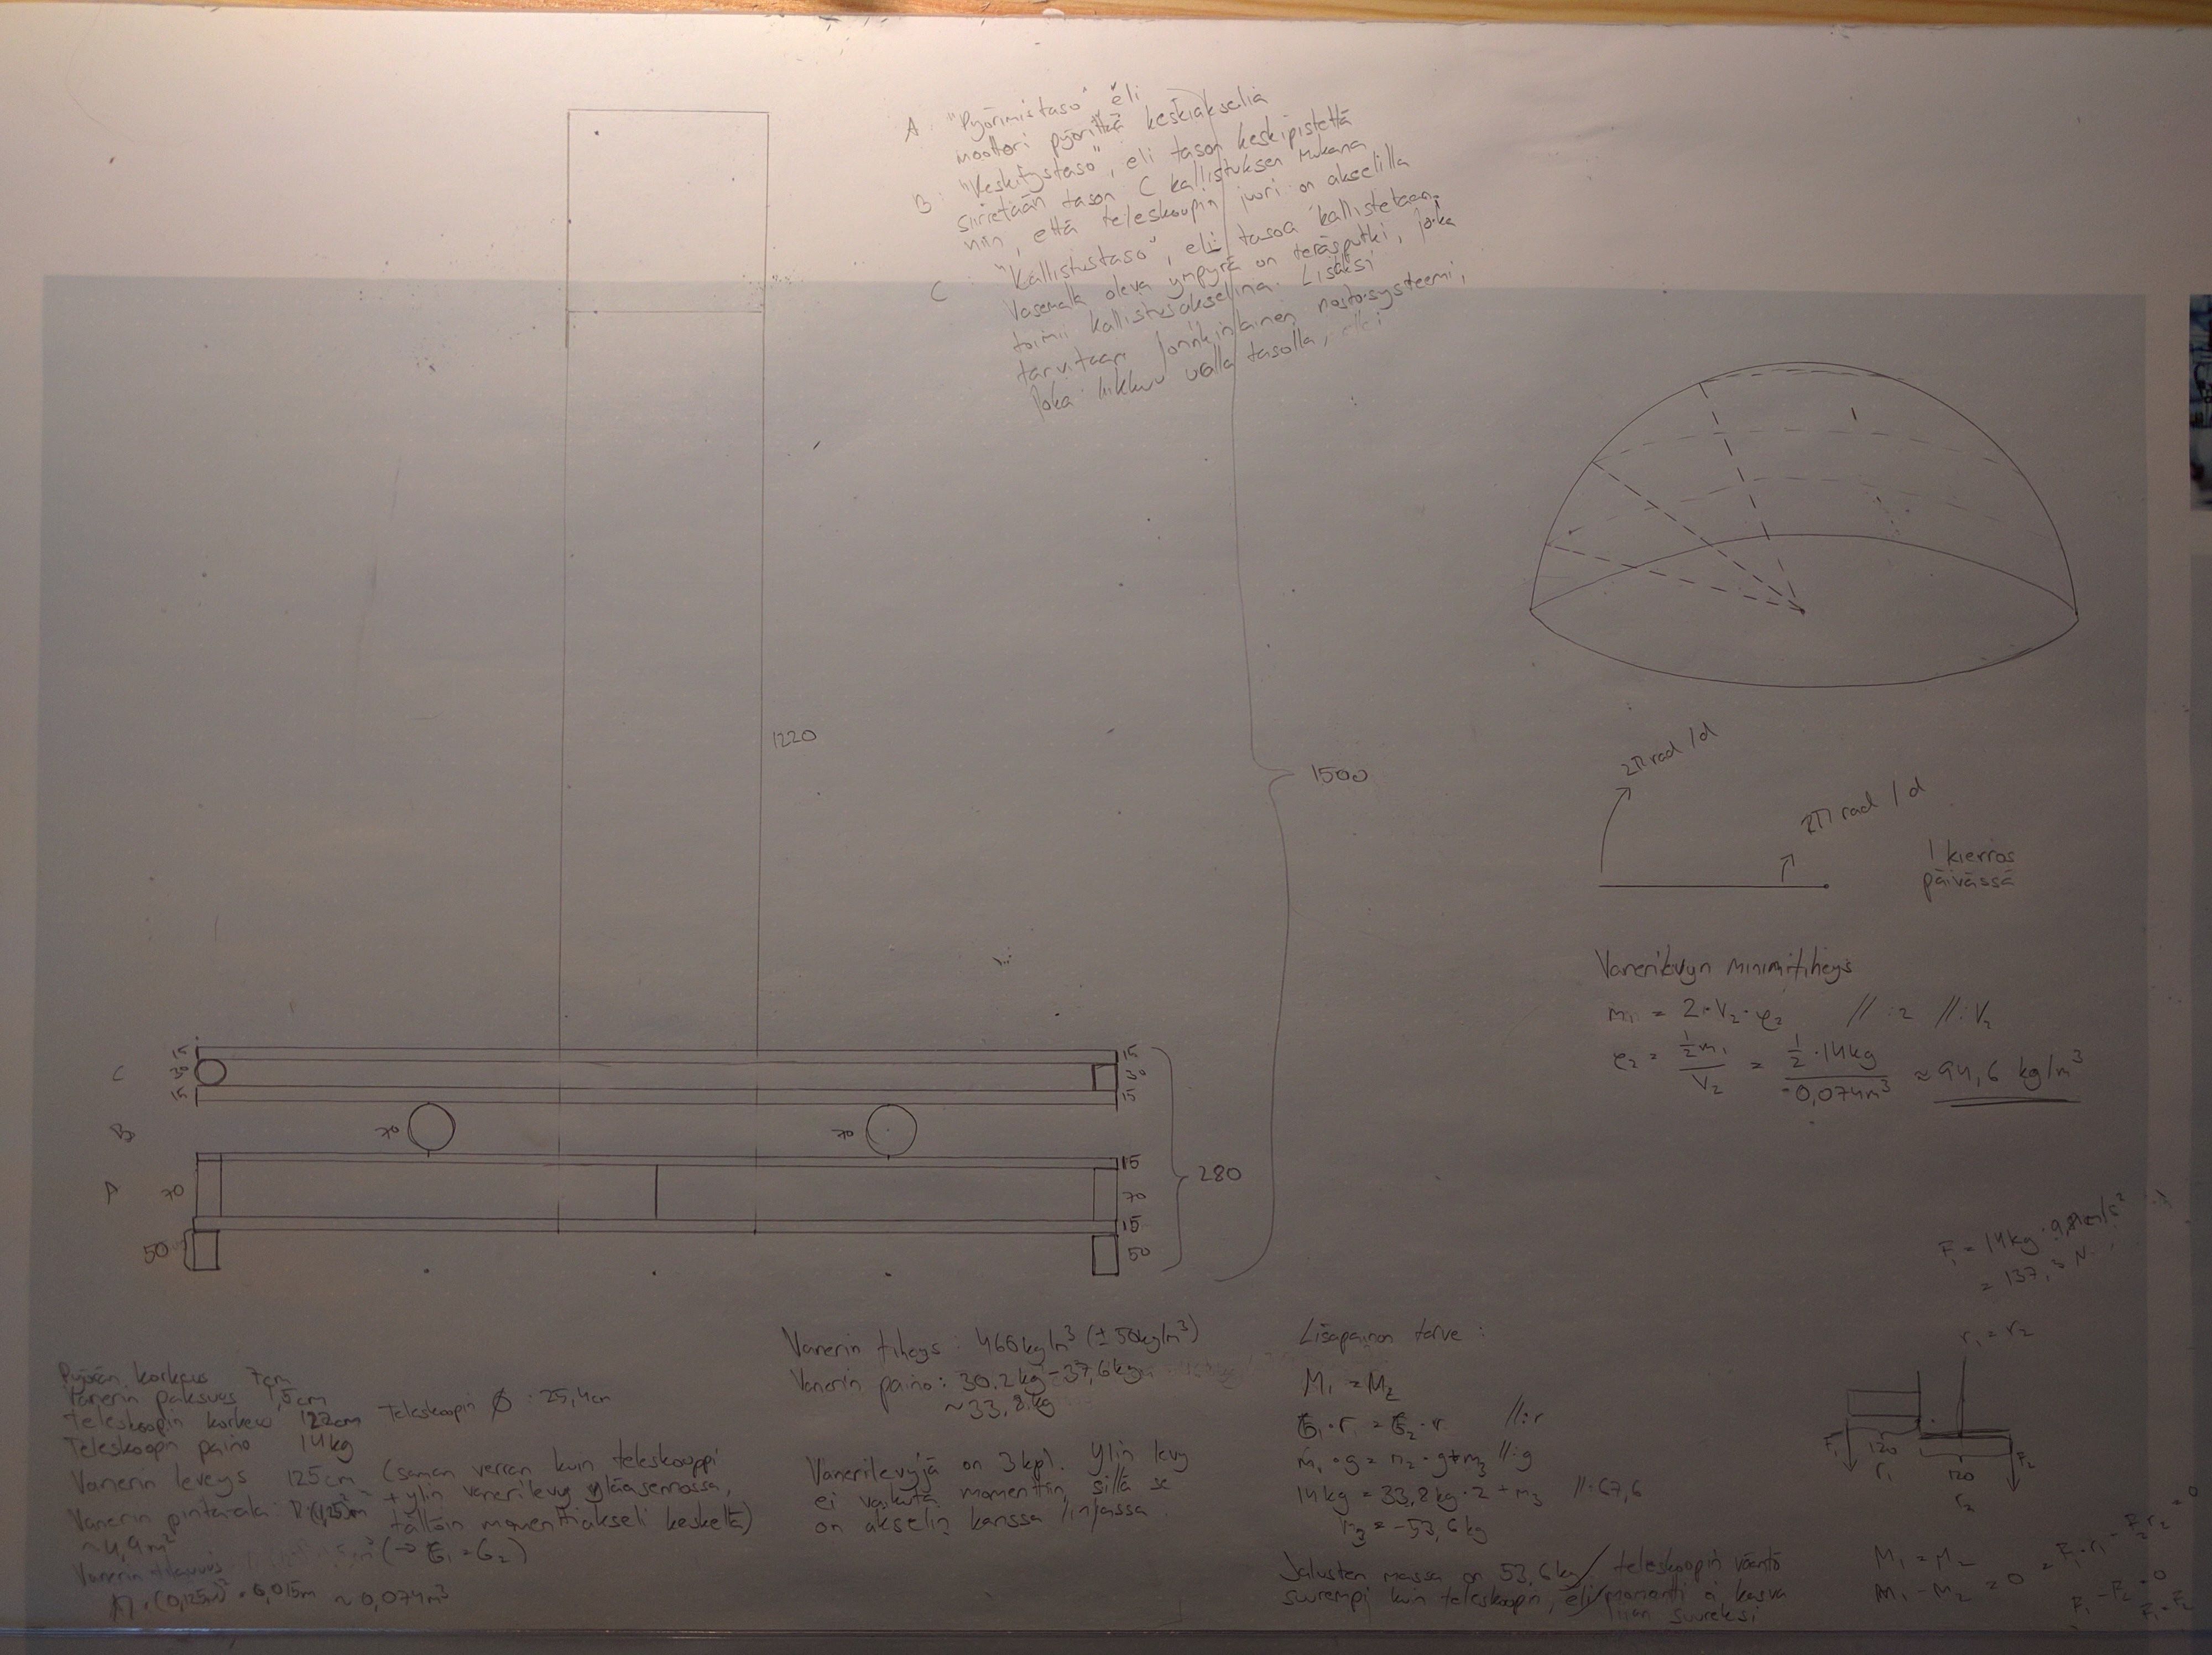 A : "Pyörimistaso" eli
moottori pyörittää keskiakselia
B : "Keskitystaso", eli tason keskipistettä
siirretään tason C kallistuksen mukana
niin, että teleskoopin juuri on akselilla
C "Kallistustaso", eli tasoa kallistetaan.
Vasemalla oleva ympyrä on teräsputki, joka
toimii kallistusakselina. Lisäksi
tarvitaan jonkinlainen nostosysteemi,
joka liikkuu tasolla,
1220
1500
2π rad / d
2π rad / d
1 kierros
päivässä
Vanerilevyn minimitiheys
m₁ = 2·V₂·ρ₂ //:2 //:V₂
ρ₂ = ½m₁ / V₂ = ½·14kg / 0,074m³ ≈ 94,6 kg/m³
C
15
30
15
15
30
15
B
70
70
A
70
50
15
70
15
50
280
F₁ = 14kg · 9,81m/s²
= 137,3 N
r₁ = r₂
F₁
120
r₁
120
r₂
F₂
M₁ = M₂
M₁ - M₂ = 0 = F₁·r₁ - F₂r₂ = 0
F₁ - F₂ = 0
F₁ = F₂
Pyörän korkeus 7cm
Vanerin paksuus 1,5cm
Teleskoopin korkeus 122cm
Teleskoopin Ø : 25,4cm
Teleskoopin paino 14kg
Vanerin leveys 125cm (saman verran kuin teleskooppi
+ ylin vanerilevy yläasennossa,
tällöin momenttiakseli keskeltä)
(→ G₁ = G₂)
Vanerin pintaala: π·(1,25)²m²
~4,9m²
Vanerin tilavuus
π·(0,125m)² · 0,015m ~ 0,074m³
Vanerin tiheys : 460kg/m³ (±50kg/m³)
Vanerin paino : 30,2kg-37,6kg
~33,8kg
Vanerilevyjä on 3kpl. Ylin levy
ei vaikuta momenttiin, sillä se
on akselin kanssa linjassa
Lisäpainon tarve :
M₁ = M₂
G₁·r = G₂·r //:r
m₁·g = m₂·g+m₃ //:g
14kg = 33,8kg·2 + m₃ //-67,6
m₃ = -53,6kg
Jalusten massa on 53,6kg teleskoopin vääntö
suurempi kuin teleskoopin, eli momentti ei kasva
liian suureksi